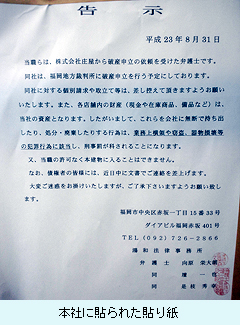 告 示
平成23年8月31日
当職らは、株式会社庄屋から破産申立の依頼を受けた弁護士です。
同社は、福岡地方裁判所に破産申立を行う予定にしております。
同社に対する個別請求や取立て等は、差し控えて頂きますようお願い
いたします。また、各店舗内の財産(現金や在庫商品、備品など)は、
当社の資産となります。したがいまして、これらを会社に無断で持ち出
したり、処分・廃棄したりする行為は、業務上横領や窃盗、器物損壊等
の犯罪行為に該当し、刑事罰が科されることになります。
又、当職の許可なく本建物に入ることはできません。
なお、債権者の皆様には、近日中に文書でご連絡を差し上げます。
大変ご迷惑をお掛けいたしますが、ご了承下さいますようお願い致し
ます。
福岡市中央区赤坂一丁目15番33号
ダイアビル福岡赤坂401号
TEL(092)726-2866
鴻和法律事務所
弁護士 向原 栄大朗
同
同 是枝 秀幸
本社に貼られた貼り紙